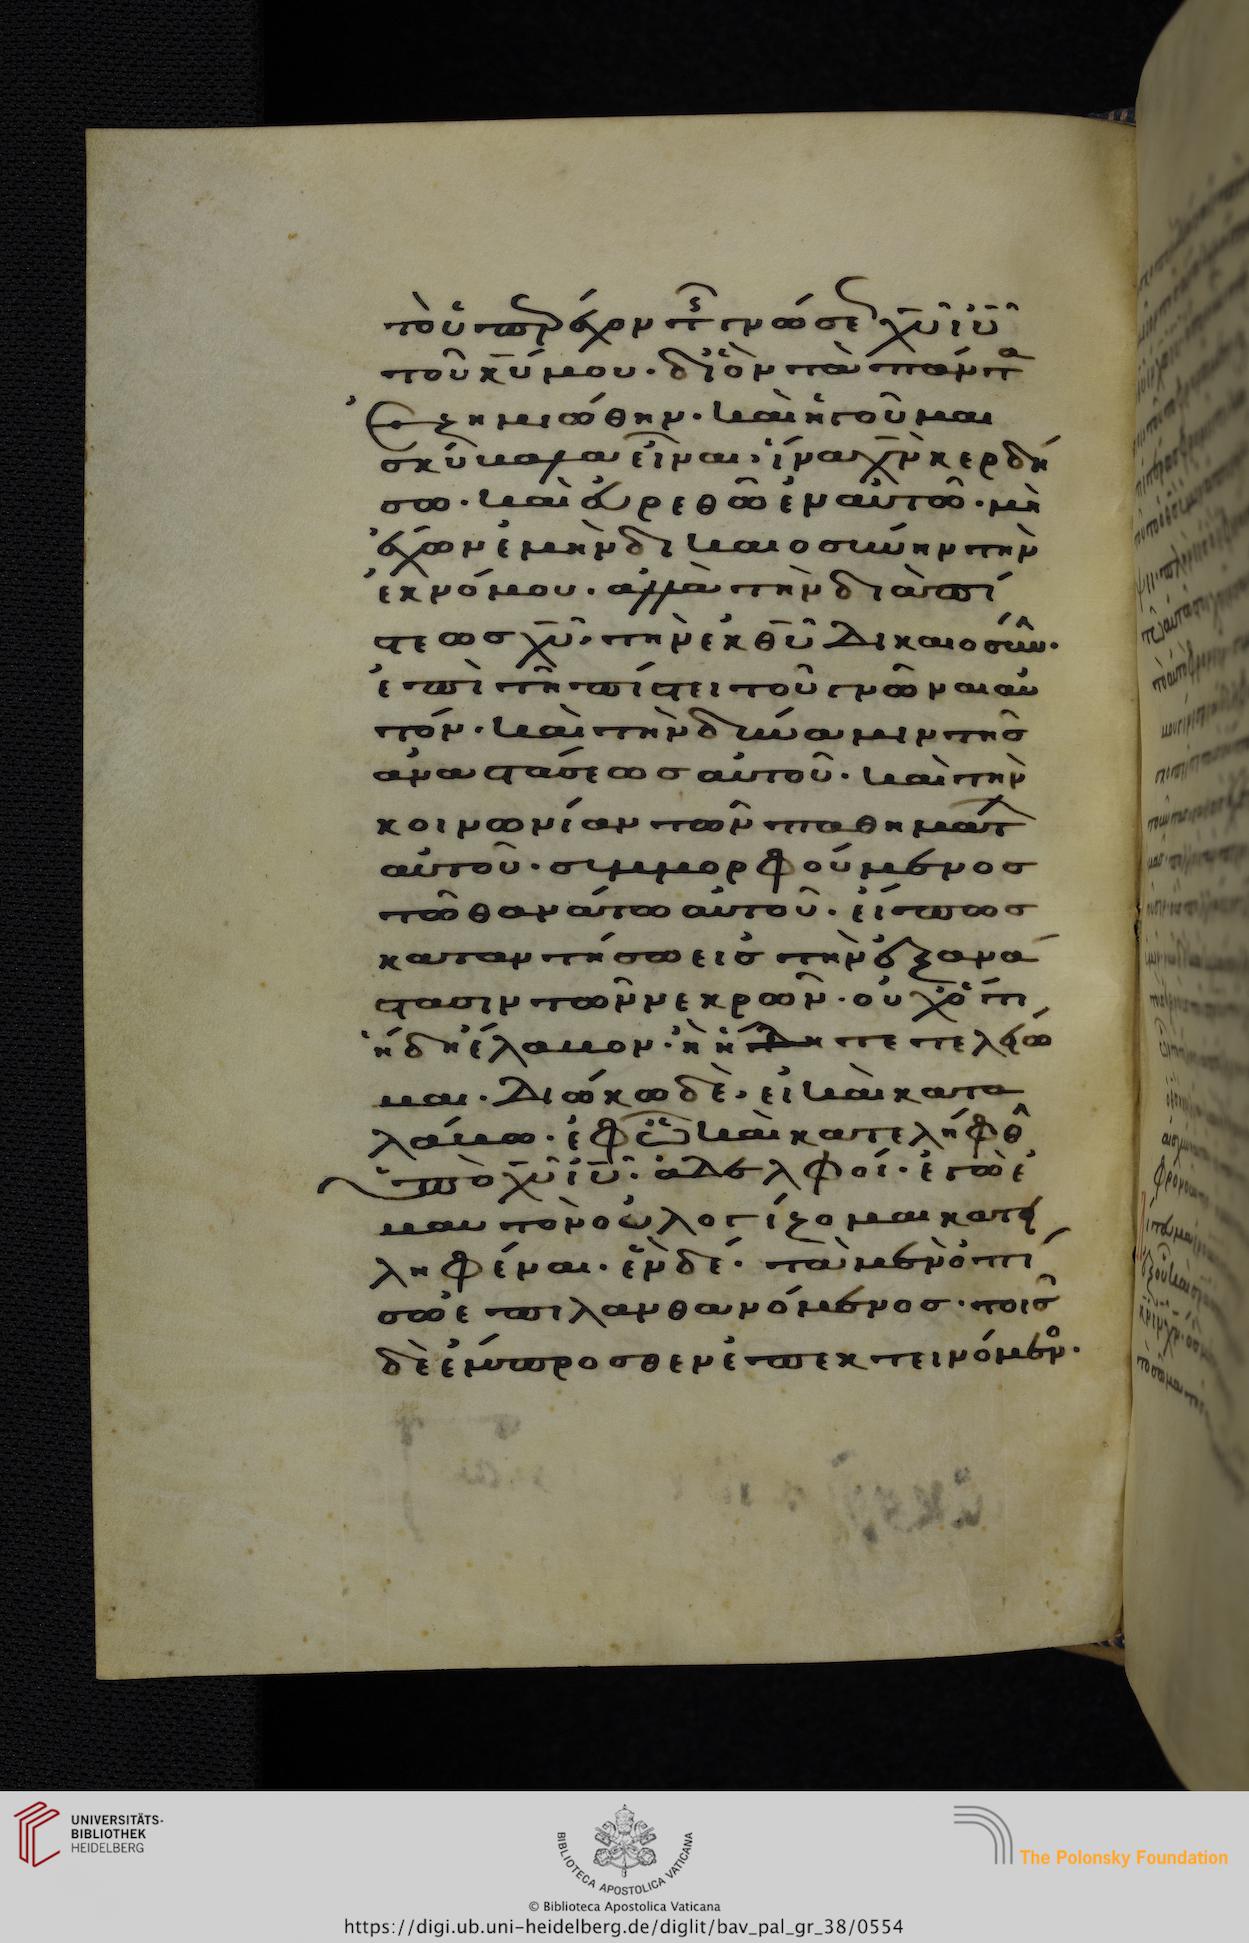 τὸ ὑπερέχον τῆς γνώσεως χῦ ιῦ
τοῦ κῦ μου· δι' ὃν τὰ πάντα
ἐζημιώθην· καὶ ἡγοῦμαι
σκύβαλα εἶναι· ἵνα χν κερδή
σω· καὶ εὑρεθῶ ἐν αὐτῶ· μὴ
ἔχων ἐμὴν δικαιοσύνην τὴν
ἐκ νόμου· ἀλλὰ τὴν διὰ πί
στεωσ χῦ· τὴν ἐκ θῦ δικαιοσύν·
ἐπὶ τῆ πίστει τοῦ γνῶναι αυ
τόν· καὶ τὴν δύναμιν τῆσ
ἀναστάσεωσ αὐτοῦ· καὶ τὴν
κοινωνίαν τῶν παθημάτ
αὐτοῦ· συμμορφούμενοσ
τῶ θανάτω αὐτοῦ· εἴπωσ
καταντήσω εἰσ τὴν ἐξανά
στασιν τῶν νεκρῶν· οὐχ ὅτι
ἤδη ἔλαβον· ἢ ἤδη τετελείω
μαι· διώκω δὲ· εἰ καὶ κατα
λάβω· ἐφ' ὧ καὶ κατελήφθ
ὑπὸ χῦ ιῦ· ἀδελφοί· ἐγὼ ἐ
μαυτὸν οὐ λογίζομαι κατει
ληφέναι· ἓν δέ· τὰ μὲν ὀπί
σω ἐπιλανθανόμενοσ· τοῖσ
δὲ ἔμπροσθεν ἐπεκτεινόμενο·
UNIVERSITÄTS-
BIBLIOTHEK
HEIDELBERG
BIBLIOTECA APOSTOLICA VATICANA
The Polonsky Foundation
© Biblioteca Apostolica Vaticana
https://digi.ub.uni-heidelberg.de/diglit/bav_pal_gr_38/0554